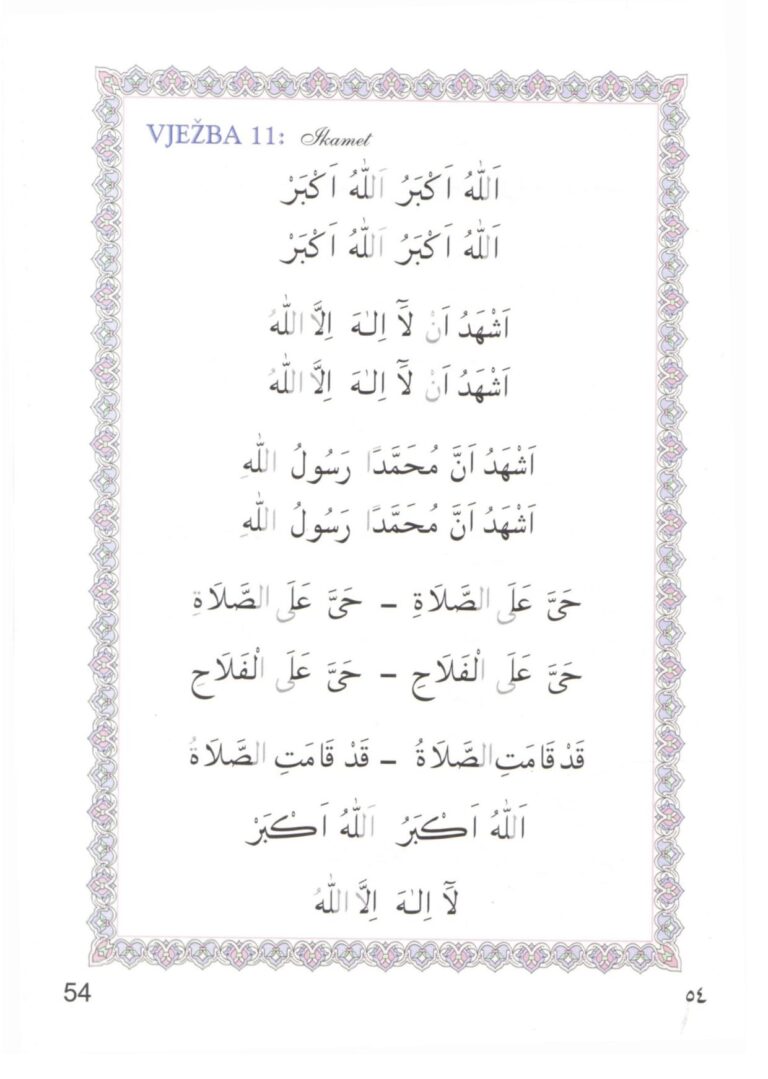 VJEŽBA 11: Ikamet
اَللّٰهُ اَكْبَرُ اَللّٰهُ اَكْبَرْ
اَللّٰهُ اَكْبَرُ اَللّٰهُ اَكْبَرْ
اَشْهَدُ اَنْ لَٓا اِلٰهَ اِلَّا اللّٰهُ
اَشْهَدُ اَنْ لَٓا اِلٰهَ اِلَّا اللّٰهُ
اَشْهَدُ اَنَّ مُحَمَّدًا رَسُولُ اللّٰهِ
اَشْهَدُ اَنَّ مُحَمَّدًا رَسُولُ اللّٰهِ
حَىَّ عَلَى الصَّلَاةِ – حَىَّ عَلَى الصَّلَاةِ
حَىَّ عَلَى الْفَلَاحِ – حَىَّ عَلَى الْفَلَاحِ
قَدْ قَامَتِ الصَّلَاةُ – قَدْ قَامَتِ الصَّلَاةُ
اَللّٰهُ اَكْبَرُ اَللّٰهُ اَكْبَرْ
لَٓا اِلٰهَ اِلَّا اللّٰهُ
54
٥٤